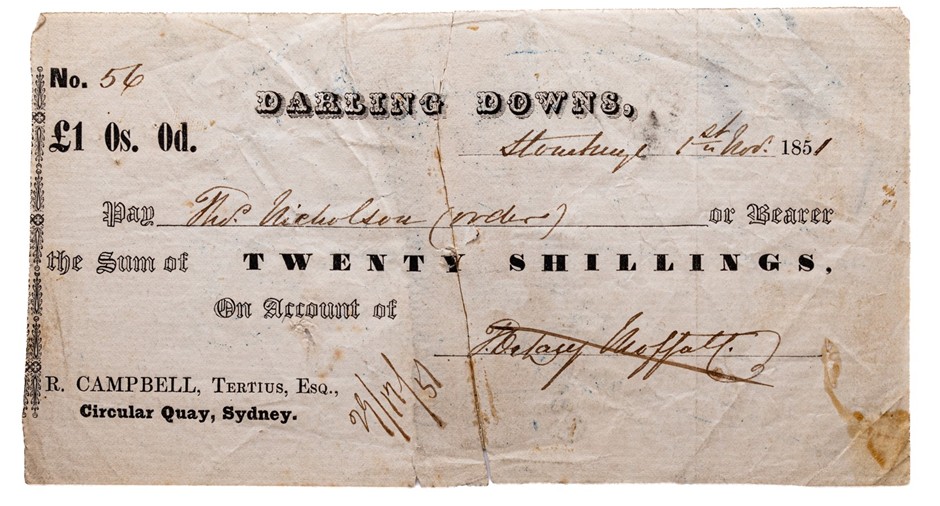 No. 56
DARLING DOWNS,
£1 0s. 0d.
Stonehenge 1st Novr. 1851
Pay Thos. Nicholson (order) or Bearer
the Sum of TWENTY SHILLINGS,
On Account of
T. DeLacy Moffatt.
R. CAMPBELL, TERTIUS, ESQ.,
Circular Quay, Sydney.